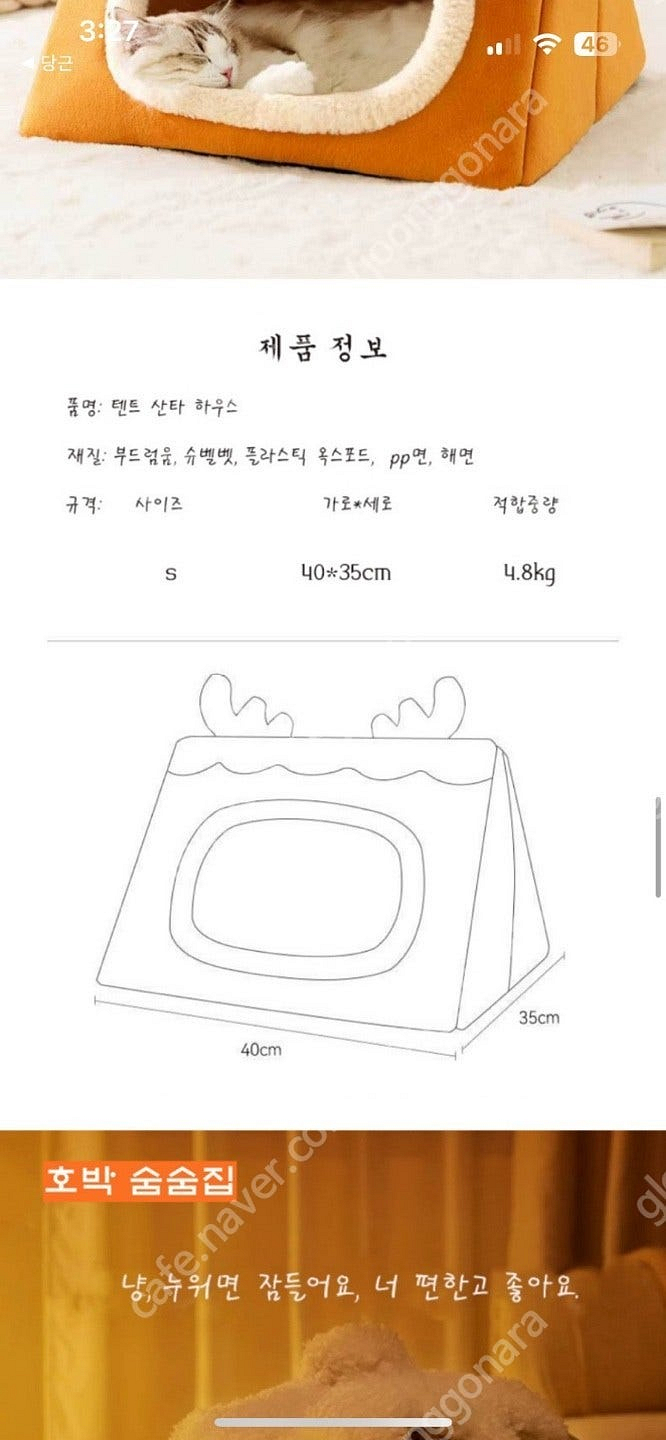 3:27
46
◀ 당근
joonggonara
제품 정보
품명: 텐트 산타 하우스
재질: 부드럼움, 슈벨벳, 플라스틱 옥스포드, pp면, 해면
규격: 사이즈 가로*세로 적합중량
S 40*35cm 4.8kg
35cm
40cm
호박 숨숨집
cafe.naver.co
냥, 누워면 잠들어요, 너 편한고 좋아요.